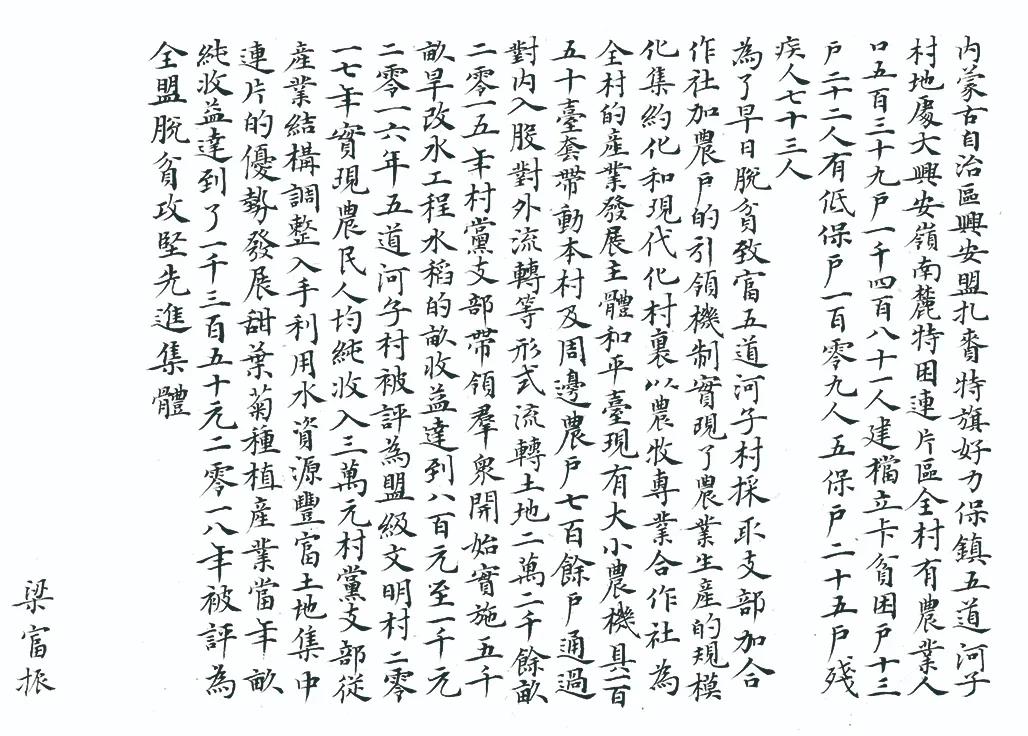 內蒙古自治區興安盟扎賚特旗好力保鎮五道河子
村地處大興安嶺南麓特困連片區全村有農業人
口五百三十九戶一千四百八十一人建檔立卡貧困戶十三
戶二十二人有低保戶一百零九人五保戶二十五戶殘
疾人七十三人
為了早日脫貧致富五道河子村採取支部加合
作社加農戶的引領機制實現了農業生產的規模
化集約化和現代化村裏以農牧專業合作社為
全村的產業發展主體和平臺現有大小農機具一百
五十臺套帶動本村及周邊農戶七百餘戶通過
對內入股對外流轉等形式流轉土地二萬二千餘畝
二零一五年村黨支部帶領羣衆開始實施五千
畝旱改水工程水稻的畝收益達到八百元至一千元
二零一六年五道河子村被評為盟級文明村二零
一七年實現農民人均純收入三萬元村黨支部從
產業結構調整入手利用水資源豐富土地集中
連片的優勢發展甜葉菊種植產業當年畝
純收益達到了一千三百五十元二零一八年被評為
全盟脫貧攻堅先進集體
梁富振